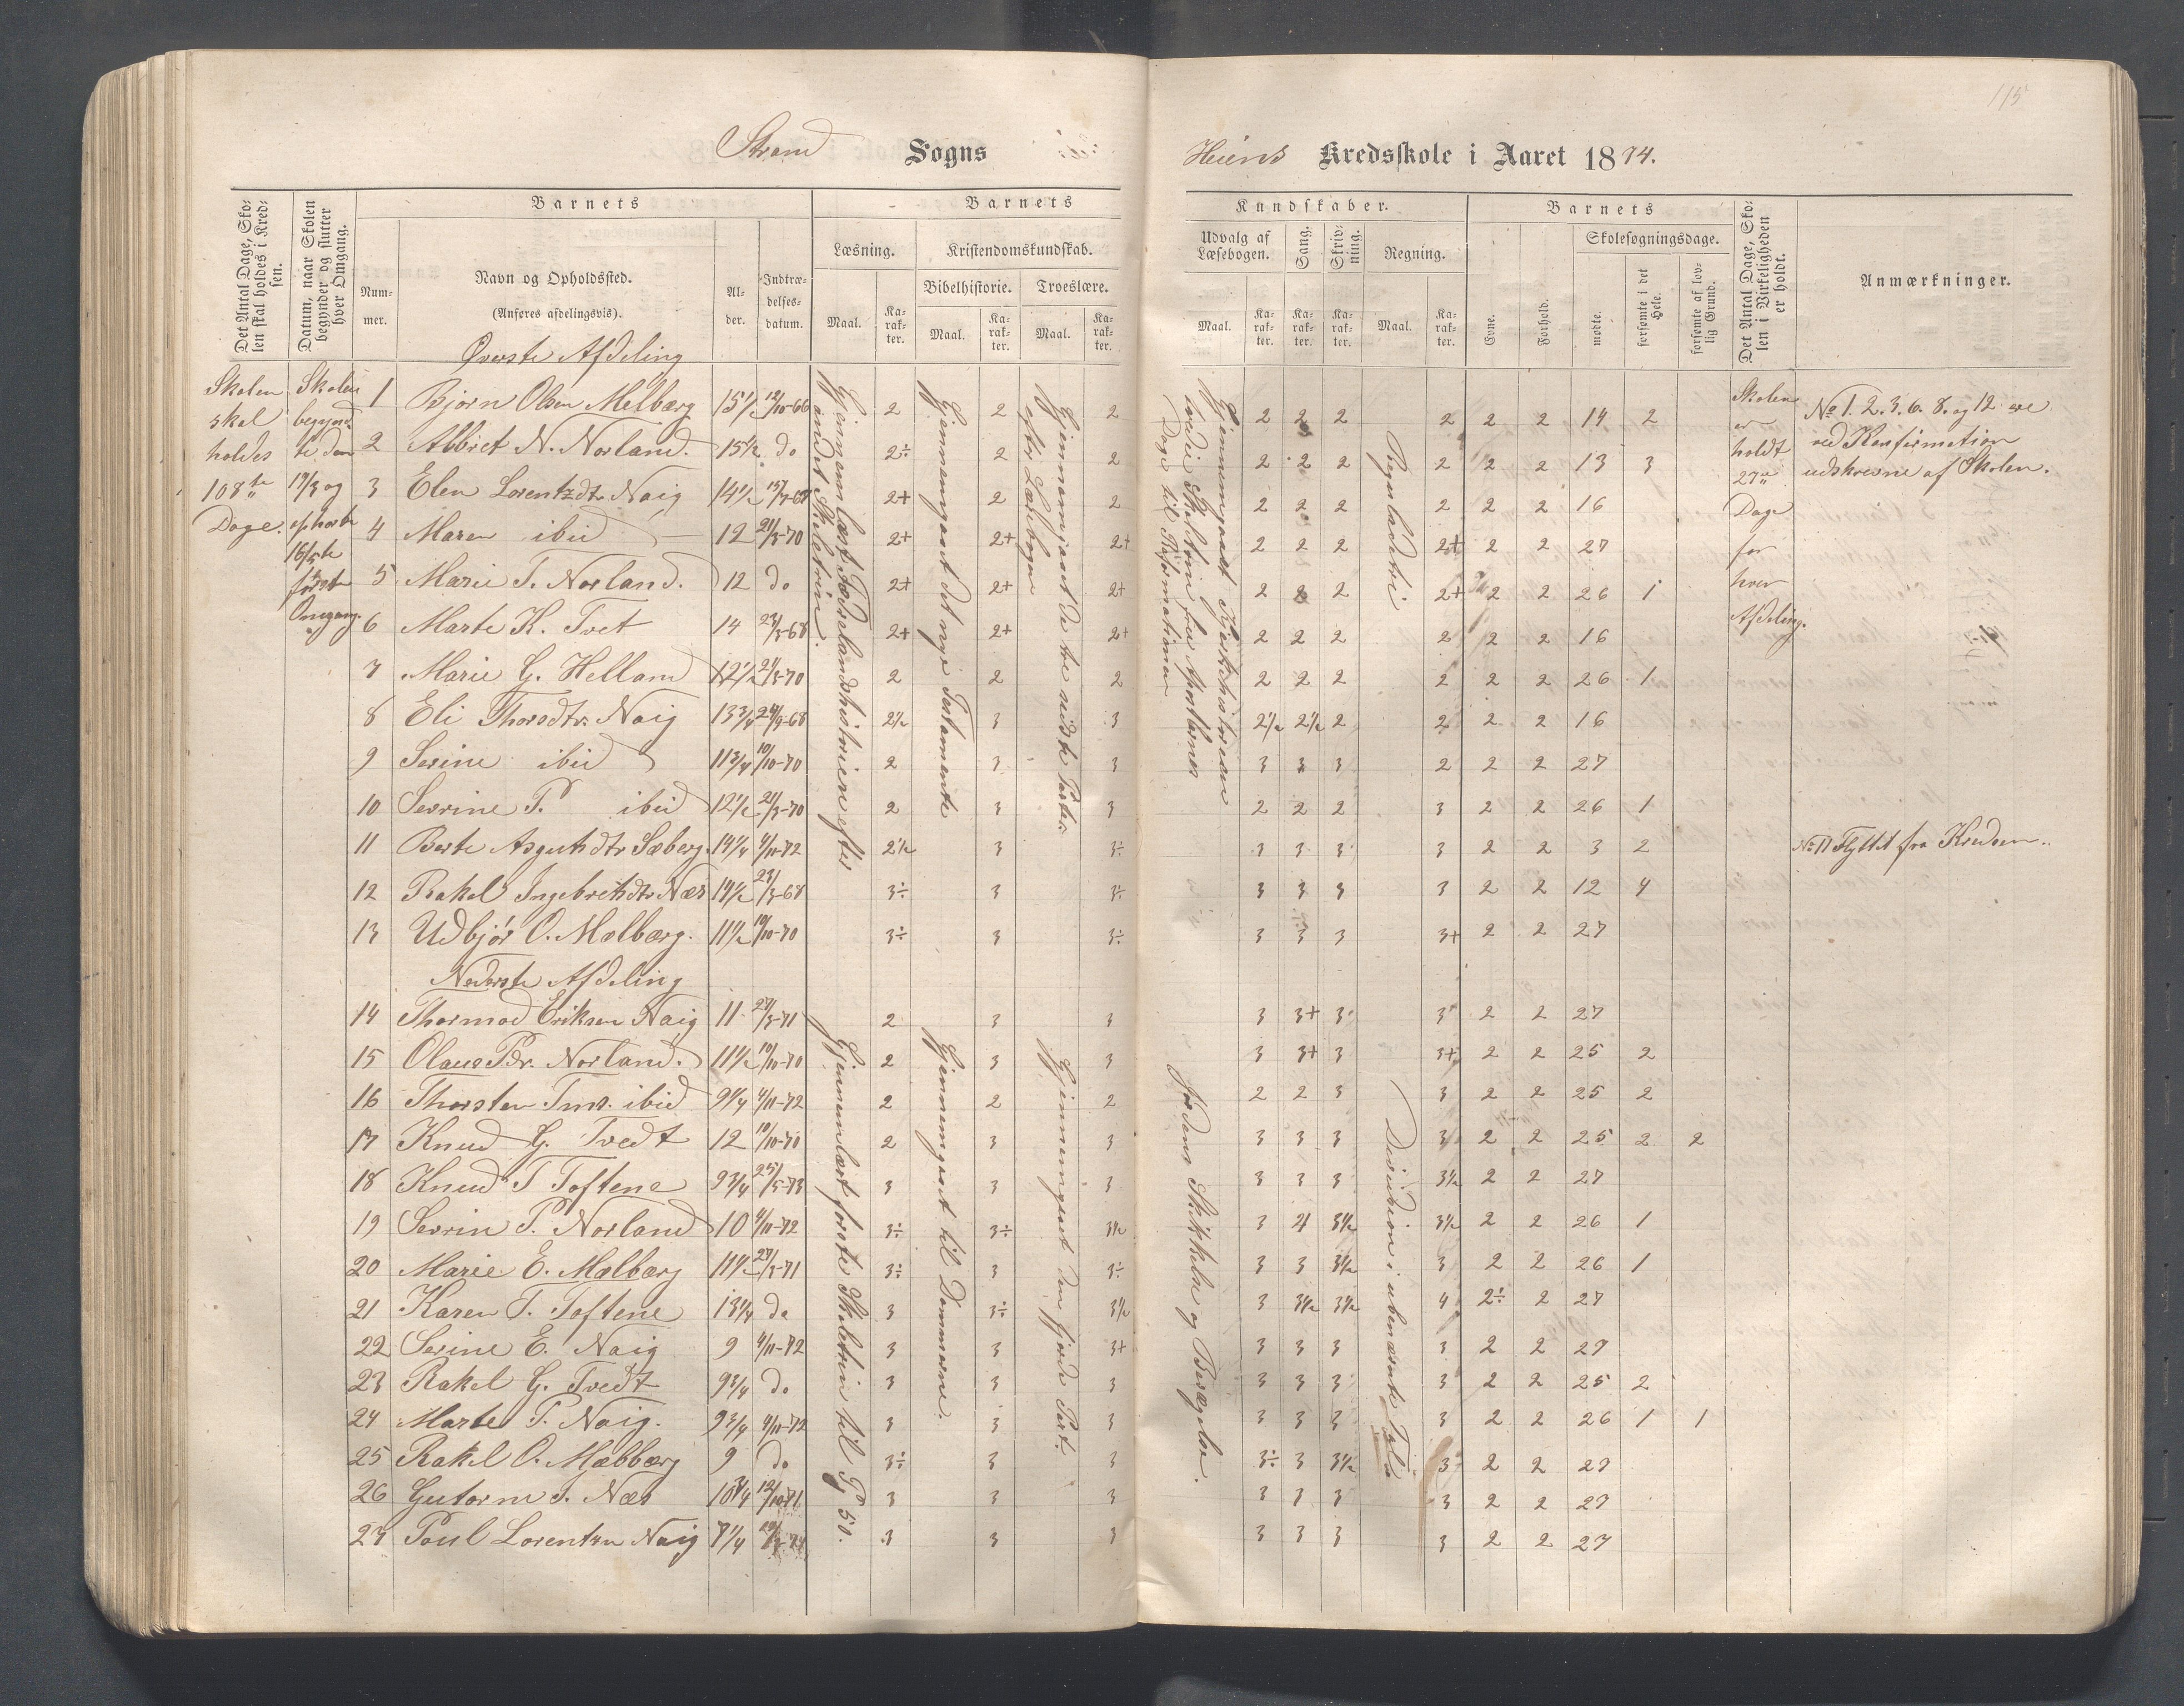 115
Strand Sogns Heiens Kredsskole i Aaret 1874.
Det Antal Dage, Skolen skal holdes i Kredsen.
Datum, naar Skolen begynder og slutter hver Omgang.
Barnets
Nummer.
Navn og Opholdssted.
(Anføres afdelingsvis).
Alder.
Indtrædelsesdatum.
Barnets Kundskaber.
Læsning.
Maal. Karakter.
Kristendomskundskab.
Bibelhistorie. Troeslære.
Maal. Karakter. Maal. Karakter.
Udvalg af Læsebogen.
Maal. Karakter.
Sang. Karakter.
Skrivning. Karakter.
Regning.
Maal. Karakter.
Barnets
Evne. Forhold.
Skolesøgningsdage.
mødte. forsømte i det Hele. forsømte af lovlig Grund.
Det Antal Dage, Skolen i Virkeligheden er holdt.
Anmærkninger.
Skolen skal holdes 108te Dage.
Skolen begyndte den 17/3 og ophørte 16/5te første Omgang.
Øverste Afdeling
1 Bjørn Olsen Melbærg 15½ 12/10-66 2 2 2 2 2 2 2 2 2 14 2
2 Abbret N. Norland. 15½ do 2÷ 2 2 2 2 2 2 2 2 13 3
3 Elen Lorentzdtr Naig 14½ 2+ 2 2 2 2 2 2 2 2 16
4 Maren ibid 12 21/3-70 2+ 2+ 2+ 2 2 2 2+ 2 2 27
5 Marie T. Norland. 12 do 2+ 2+ 2+ 2 2 2 2+ 2 2 26 1
6 Marte K. Tvet 14 23/3-68 2+ 2+ 2+ 2 2 2 2 2 2 16
7 Marie G. Helland 12½ 21/3-70 2 2 2 2 2 2 2 2 2 26 1
8 Eli Thorsdtr. Naig 13¾ 24/9-68 2½ 3 3 2½ 2½ 2 2 2 2 16
9 Serine ibid 11¾ 10/10-70 2 3 3 3 3 3 2 2 2 27
10 Sevrine P. ibid 12½ 21/3-70 2 3 3 2 2 2 3 2 2 26 1
11 Berte Asgutsdtr Sæberg. 14¼ 4/11-72 2½ 3 3÷ 3 3 3 3 2 2 3 2
12 Rakel Ingebretsdtr Næs 14½ 23/3-68 3÷ 3 3÷ 3 3 3 3 2 2 12 4
13 Udbjør O. Mælbærg. 11½ 10/10-70 3÷ 3 3÷ 3 3 3 3+ 2 2 27
Nederste Afdeling
14 Thormod Eriksen Naig 11 27/3-71 2 3 3 3 3+ 3 3 2 2 27
15 Olaus Pdr. Norland. 11½ 10/10-70 2 3 3 3 3+ 3 3+ 2 2 25 2
16 Thorsten Tms. ibid 9¼ 4/11-72 2 2 2 2 2 3 3 2 2 25 2
17 Knud G. Tvedt 12 10/10-70 2 3 3 3 3 3 3 2 2 25 2 2
18 Knud T Toftene 9¾ 25/5-73 3 3 3 3 3 3 3½ 2 2 27
19 Sevrin P. Norland 10 4/11-72 3÷ 3÷ 3½ 3 4 3½ 3½ 2 2 26 1
20 Marie E. Mælbærg 11½ 27/3-71 3÷ 3 3÷ 3 3 3½ 3 2 2 26 1
21 Karen T. Toftene 13¼ do 3 3÷ 3½ 3 3½ 3½ 4 2÷ 2 27
22 Serine E. Naig 9 4/11-72 3 3 3+ 3 3 3 3 2 2 27
23 Rakel G. Tvedt 9¾ do 3 3 3 3 3 3 3 2 2 25 2
24 Marte P. Naig. 9¾ 4/11-72 3 3 3 3 3 3 3 2 2 26 1 1
25 Rakel O. Mæbbærg 9 do 3÷ 3 3 3÷ 3 3½ 3 2 2 27
26 Gutorm J. Næs 10¾ 12/10-71 3 3 3 3 3 3 3 2 2 27
27 Poul Lorentsen Naig 7¼ 3 3 3 3 3 3 3 2 2 27
Gjennemlæst Fædrelandshistorien efter andet Skoletrin.
Gjennemgaaet det nye Testamente
Gjennemgaaet de tre sidste Parter efter Læsebogen
Gjennemgaaet Kirkehistorien tredie Skoletrin fra Apostlernes Dage til Reformationen
Reguladetri
Gjennemlæst første Skoletrin til P 50.
Gjennemgaaet til Dommerne.
Gjennemgaaet den fjerde Part.
Jordens Skikkelse og Bevægelse.
Division i ubenævnte Tal
Skolen er holdt 27 Dage for hver Afdeling.
No 1. 2. 3. 6. 8. og 12 ere
ved Konfirmation
udskrevne af Skolen.
No 11 Flyttet fra Kredsen.